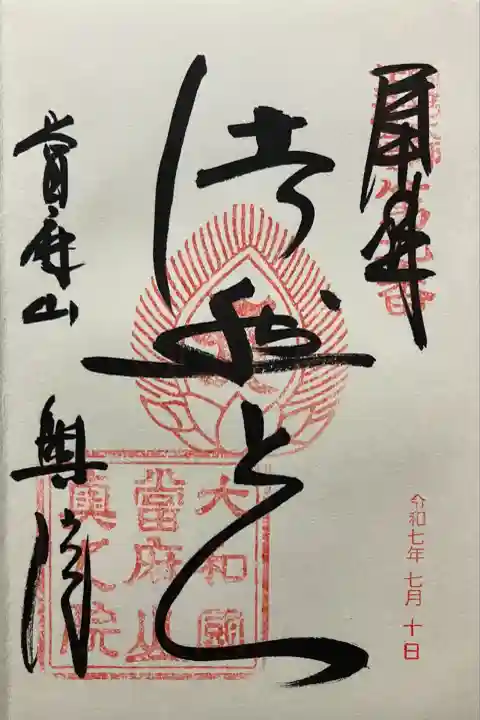 奉拝
法然上人
當麻山
奥院
大和國
當麻山
奥之院
令和七年 七月 十日